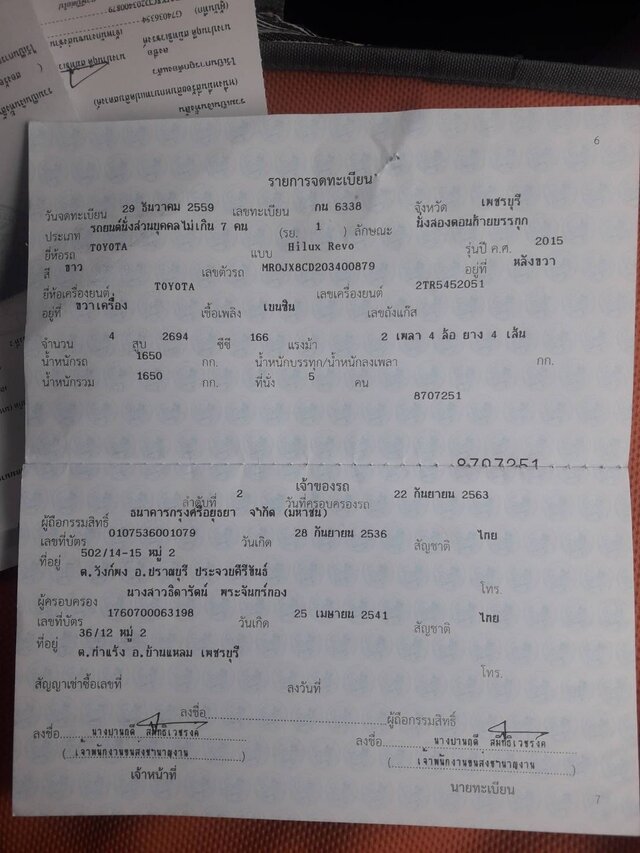 6
รายการจดทะเบียน
วันจดทะเบียน 29 ธันวาคม 2559 เลขทะเบียน กน 6338 จังหวัด เพชรบุรี
ประเภท รถยนต์นั่งส่วนบุคคลไม่เกิน 7 คน (รย. 1 ) ลักษณะ นั่งสองตอนท้ายบรรทุก
ยี่ห้อรถ TOYOTA แบบ Hilux Revo รุ่นปี ค.ศ. 2015
สี ขาว เลขตัวรถ MR0JX8CD203400879 อยู่ที่ หลังขวา
ยี่ห้อเครื่องยนต์ TOYOTA เลขเครื่องยนต์ 2TR5452051
อยู่ที่ ขวาเครื่อง เชื้อเพลิง เบนซิน เลขถังแก๊ส
จำนวน 4 สูบ 2694 ซีซี 166 แรงม้า 2 เพลา 4 ล้อ ยาง 4 เส้น
น้ำหนักรถ 1650 กก. น้ำหนักบรรทุก/น้ำหนักลงเพลา กก.
น้ำหนักรวม 1650 กก. ที่นั่ง 5 คน
8707251
8707251
เจ้าของรถ
ลำดับที่ 2 วันที่ครอบครองรถ 22 กันยายน 2563
ผู้ถือกรรมสิทธิ์ ธนาคารกรุงศรีอยุธยา จำกัด (มหาชน)
เลขที่บัตร 0107536001079 วันเกิด 28 กันยายน 2536 สัญชาติ ไทย
ที่อยู่ 502/14-15 หมู่ 2
ต.วังก์พง อ.ปราณบุรี ประจวบคีรีขันธ์
โทร.
ผู้ครอบครอง นางสาวธิดารัตน์ พระจันทร์กอง
เลขที่บัตร 1760700063198 วันเกิด 25 เมษายน 2541 สัญชาติ ไทย
ที่อยู่ 36/12 หมู่ 2
ต.ท่าแร้ง อ.บ้านแหลม เพชรบุรี
โทร.
สัญญาเช่าซื้อเลขที่ ลงวันที่
ลงชื่อ ผู้ถือกรรมสิทธิ์
ลงชื่อ ลงชื่อ
(เจ้าพนักงานขนส่งชำนาญงาน) (เจ้าพนักงานขนส่งชำนาญงาน)
เจ้าหน้าที่ นายทะเบียน
7